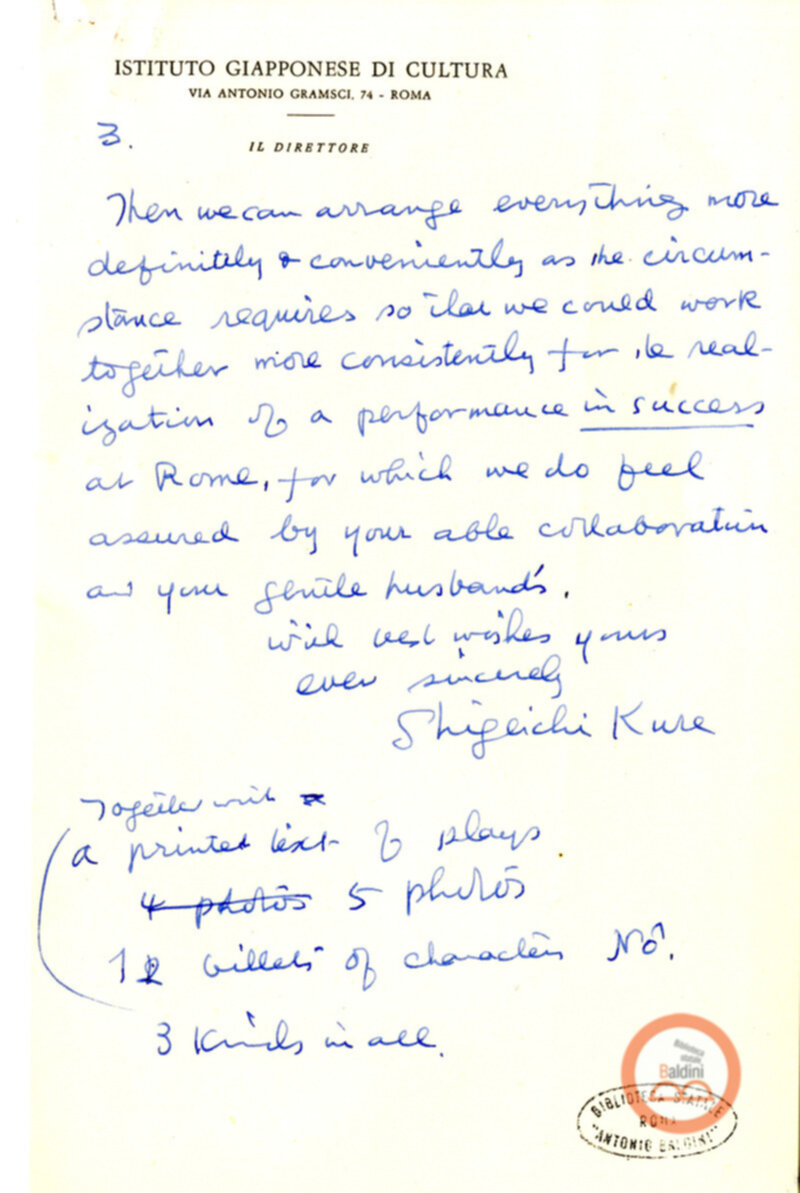 ISTITUTO GIAPPONESE DI CULTURA
VIA ANTONIO GRAMSCI, 74 - ROMA
3.
IL DIRETTORE
Then we can arrange everything more
definitely & conveniently as the circum-
stance requires so that we could work
together more consistently for the real-
ization of a performance in success
at Rome, for which we do feel
assured by your able collaboration
and your gentle husband's.
With best wishes yours
ever sincerely
Shigeichi Kure
Together with
a printed text of plays
4 photos 5 photos
12 billets of characters Nô.
3 kinds in all.
Biblioteca
statale
Baldini
BIBLIOTECA STATALE
ROMA
"ANTONIO BALDINI"